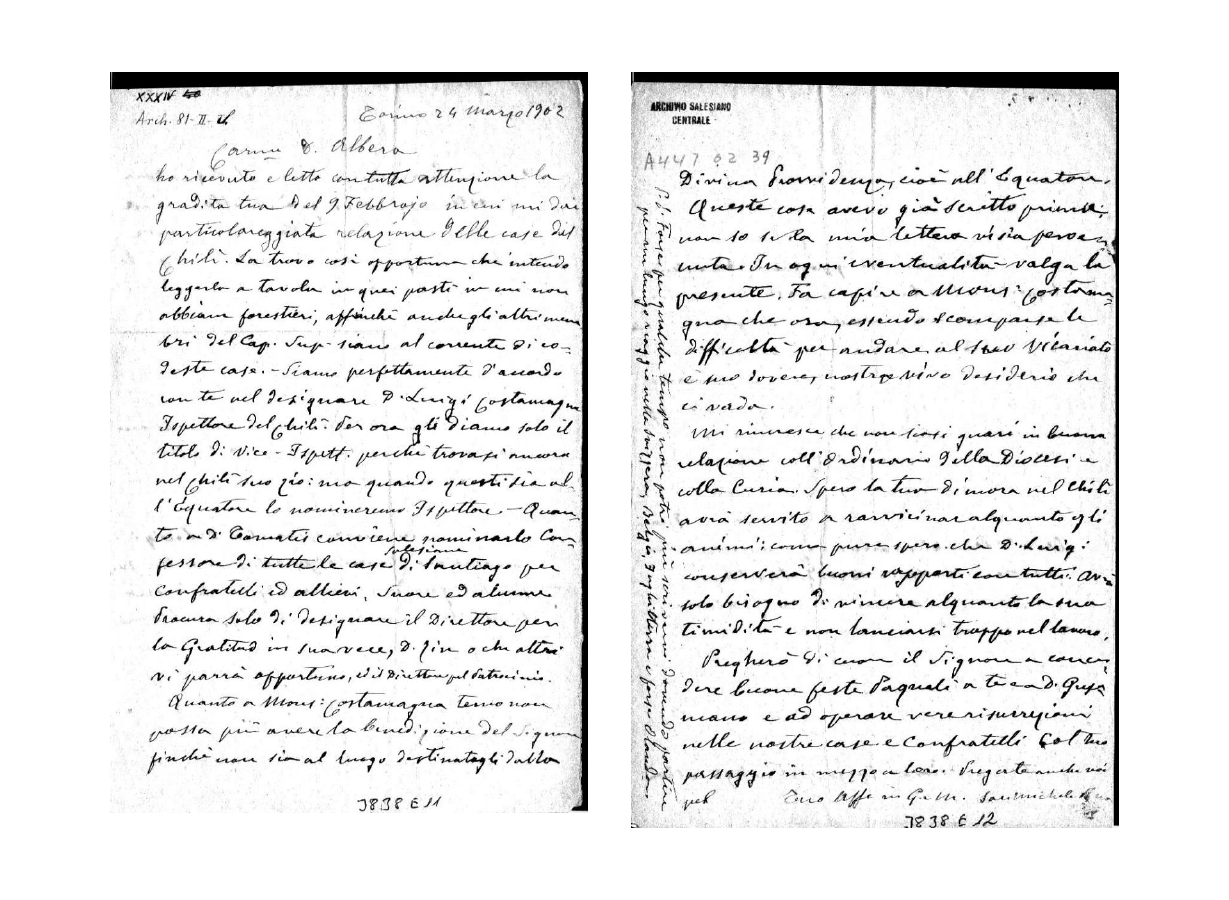 XXXIV
Arch. 81-II-
Torino 24 Marzo 1902
Carmo D. Albera
ho ricevuto e letto con tutta attenzione la
gradita tua del 9 Febbrajo in cui mi dai
particolareggiata relazione delle case del
Chilì. La trovo così opportuna che intendo
leggerla a tavola in quei pasti in cui non
abbiam forestieri, affinchè anche gli altri mem
bri del Cap. Sup. siano al corrente di co-
deste case. - Siamo perfettamente d'accordo
con te nel designare D. Luigi Costamagna
Ispettore del Chilì. Per ora gli diamo solo il
titolo di Vice-Ispett. perchè trovasi ancora
nel Chilì suo zio: ma quando questi sia al-
l'Equatore lo nomineremo Ispettore. - Quan-
to a D. Tomatis conviene nominarlo Con-
salesiane
fessore di tutte le case di Santiago per
Confratelli ed allievi, Suore ed alunne
Procura solo di designare il Direttore per
la Gratitud in sua vece, D. o che altri
vi parrà opportuno, ed il Direttore pel Patrocinio.
Quanto a Mons: Costamagna temo non
possa più avere la benedizione del Signore
finchè non sia al luogo destinatogli dalla
J838 E 11
ARCHIVIO SALESIANO
CENTRALE
A447 02 39
Divina Provvidenza, cioè all'Equatore.
Queste cose avevo già scritto prima;
non so se la mia lettera vi sia perve-
nuta. In ogni eventualità valga la
presente. Fa capire a Mons: Costama-
gna che ora, essendo scomparse le
difficoltà per andare al suo Vicariato
è suo dovere, nostro vivo desiderio che
ci vada.
Mi rincresce che non siasi guari in buona
relazione coll'Ordinario della Diocesi e
colla Curia. Spero la tua dimora nel Chilì
avrà servito a ravvicinar alquanto gli
animi: come pure spero che D. Luigi
conserverà buoni rapporti con tutti. Avrà
solo bisogno di vincere alquanto la sua
timidità e non lanciarsi troppo nel lavoro.
Pregherò di cuore il Signore a conce-
dere buone feste Pasquali a te e a D. Gus
mano e ad operare vere risurrezioni
nelle nostre case e Confratelli col tuo
passaggio in mezzo a loro. Pregate anche voi
pel Tuo Aff. in G. e M. Sac. Michele Rua
P.S. Forse per qualche tempo non potrò più scrivervi dovendo partire
per un lungo viaggio nella Svizzera, Belgio, Inghilterra e forse Olanda.
J838 E 12